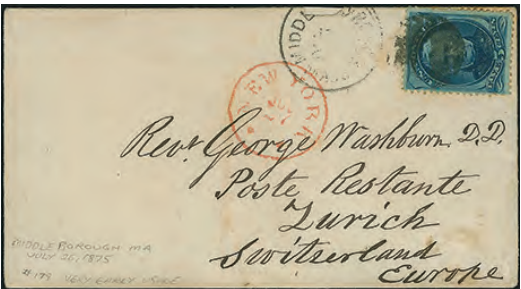 MIDDL
NEW YORK
JUL
27
Revd George Washburn, D.D.
Poste Restante
Zurich
Switzerland
Europe
MIDDLEBOROUGH MA
JULY 26, 1875
#179 VERY EARLY USAGE